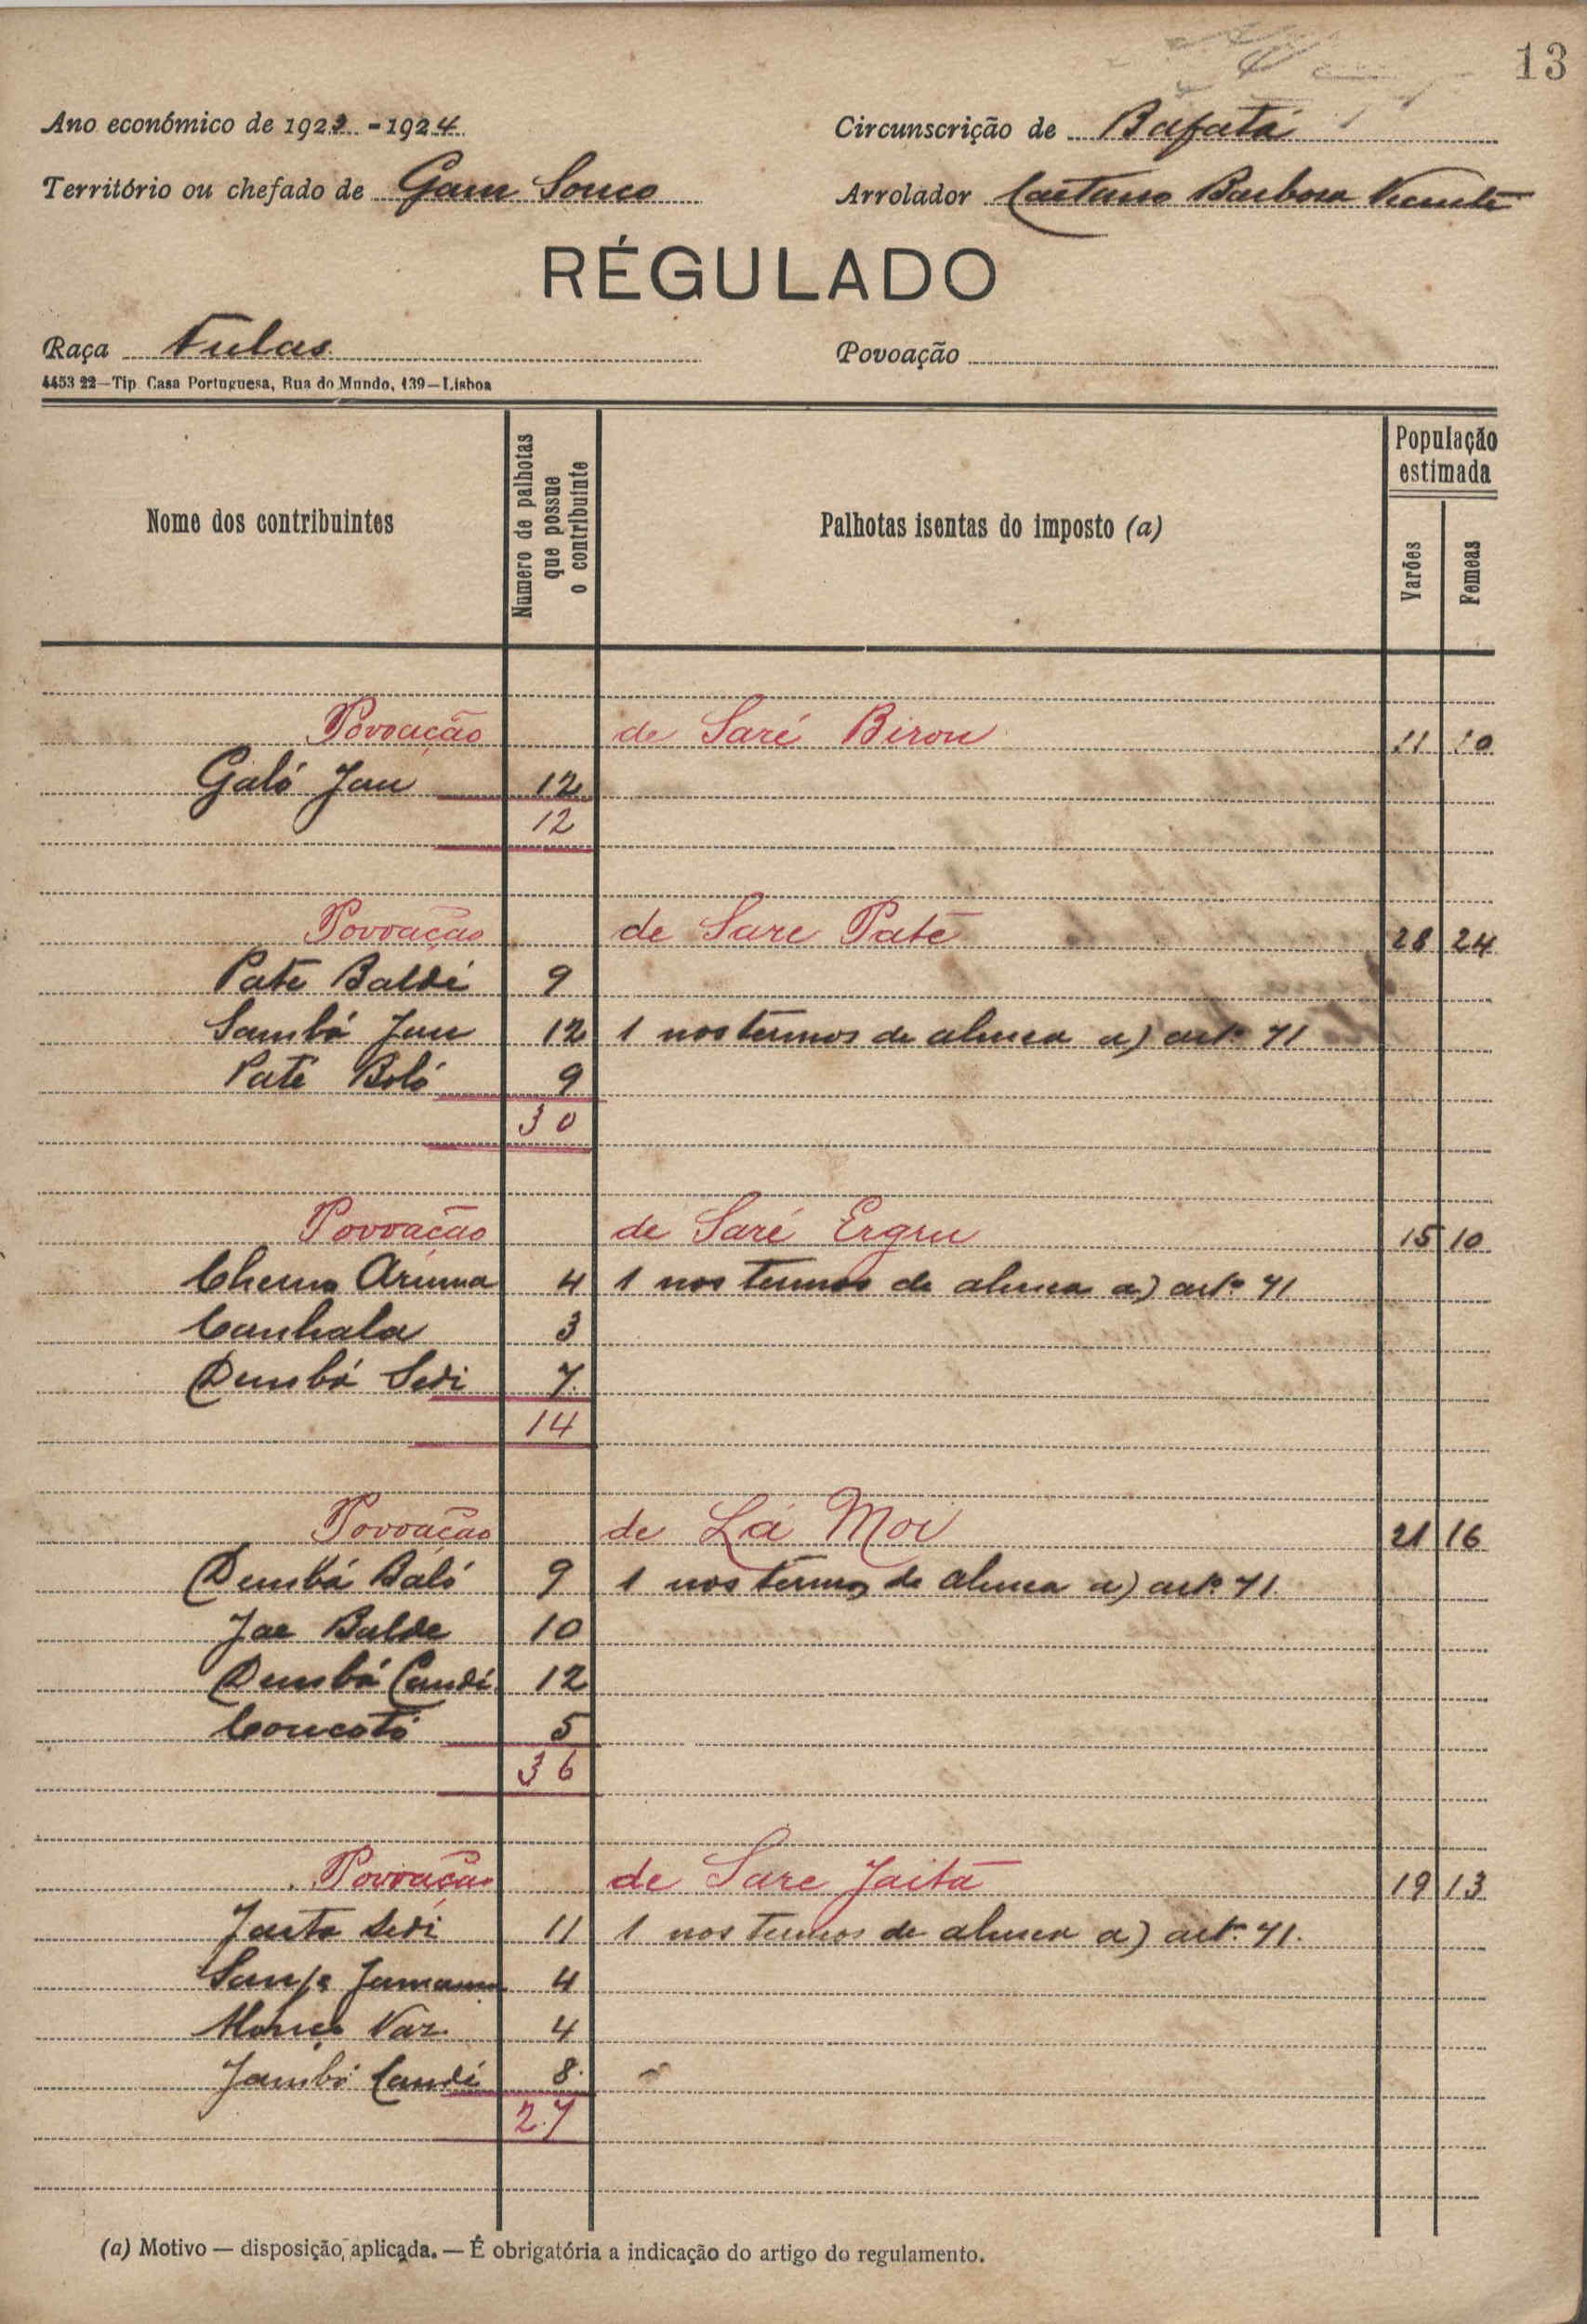 13
Ano económico de 1923 - 1924 Circunscrição de Bafatá
Território ou chefado de Gam Sonco Arrolador Caetano Barbosa Vicente
RÉGULADO
Raça Fulas Povoação
4453 22—Tip. Casa Portuguesa, Rua do Mundo, 139—Lisboa
Nome dos contribuintes Número de palhotas que possue o contribuinte Palhotas isentas do imposto (a) População estimada Varões Femeas
Povoação de Saré Biron 11 10
Galó Jau 12
12
Povoação de Sare Paté 28 24
Pate Baldé 9
Sambá Jau 12 1 nos termos de alinea a) artº 71
Paté Boló 9
30
Povoação de Saré 15 10
Aruna 4 1 nos termos de alinea a) artº 71
Canhala 3
Dembá Sedi 7
14
Povoação de Lá Moi 21 16
Dembá Baló 9 1 nos termos de alinea a) artº 71.
Jae Balde 10
Dembá Candé 12
5
36
Povoação de Sare Jaitá 19 13
Jaita Sedi 11 1 nos termos de alinea a) artº 71.
4
4
Candé 8
27
(a) Motivo — disposição aplicada. — É obrigatória a indicação do artigo do regulamento.